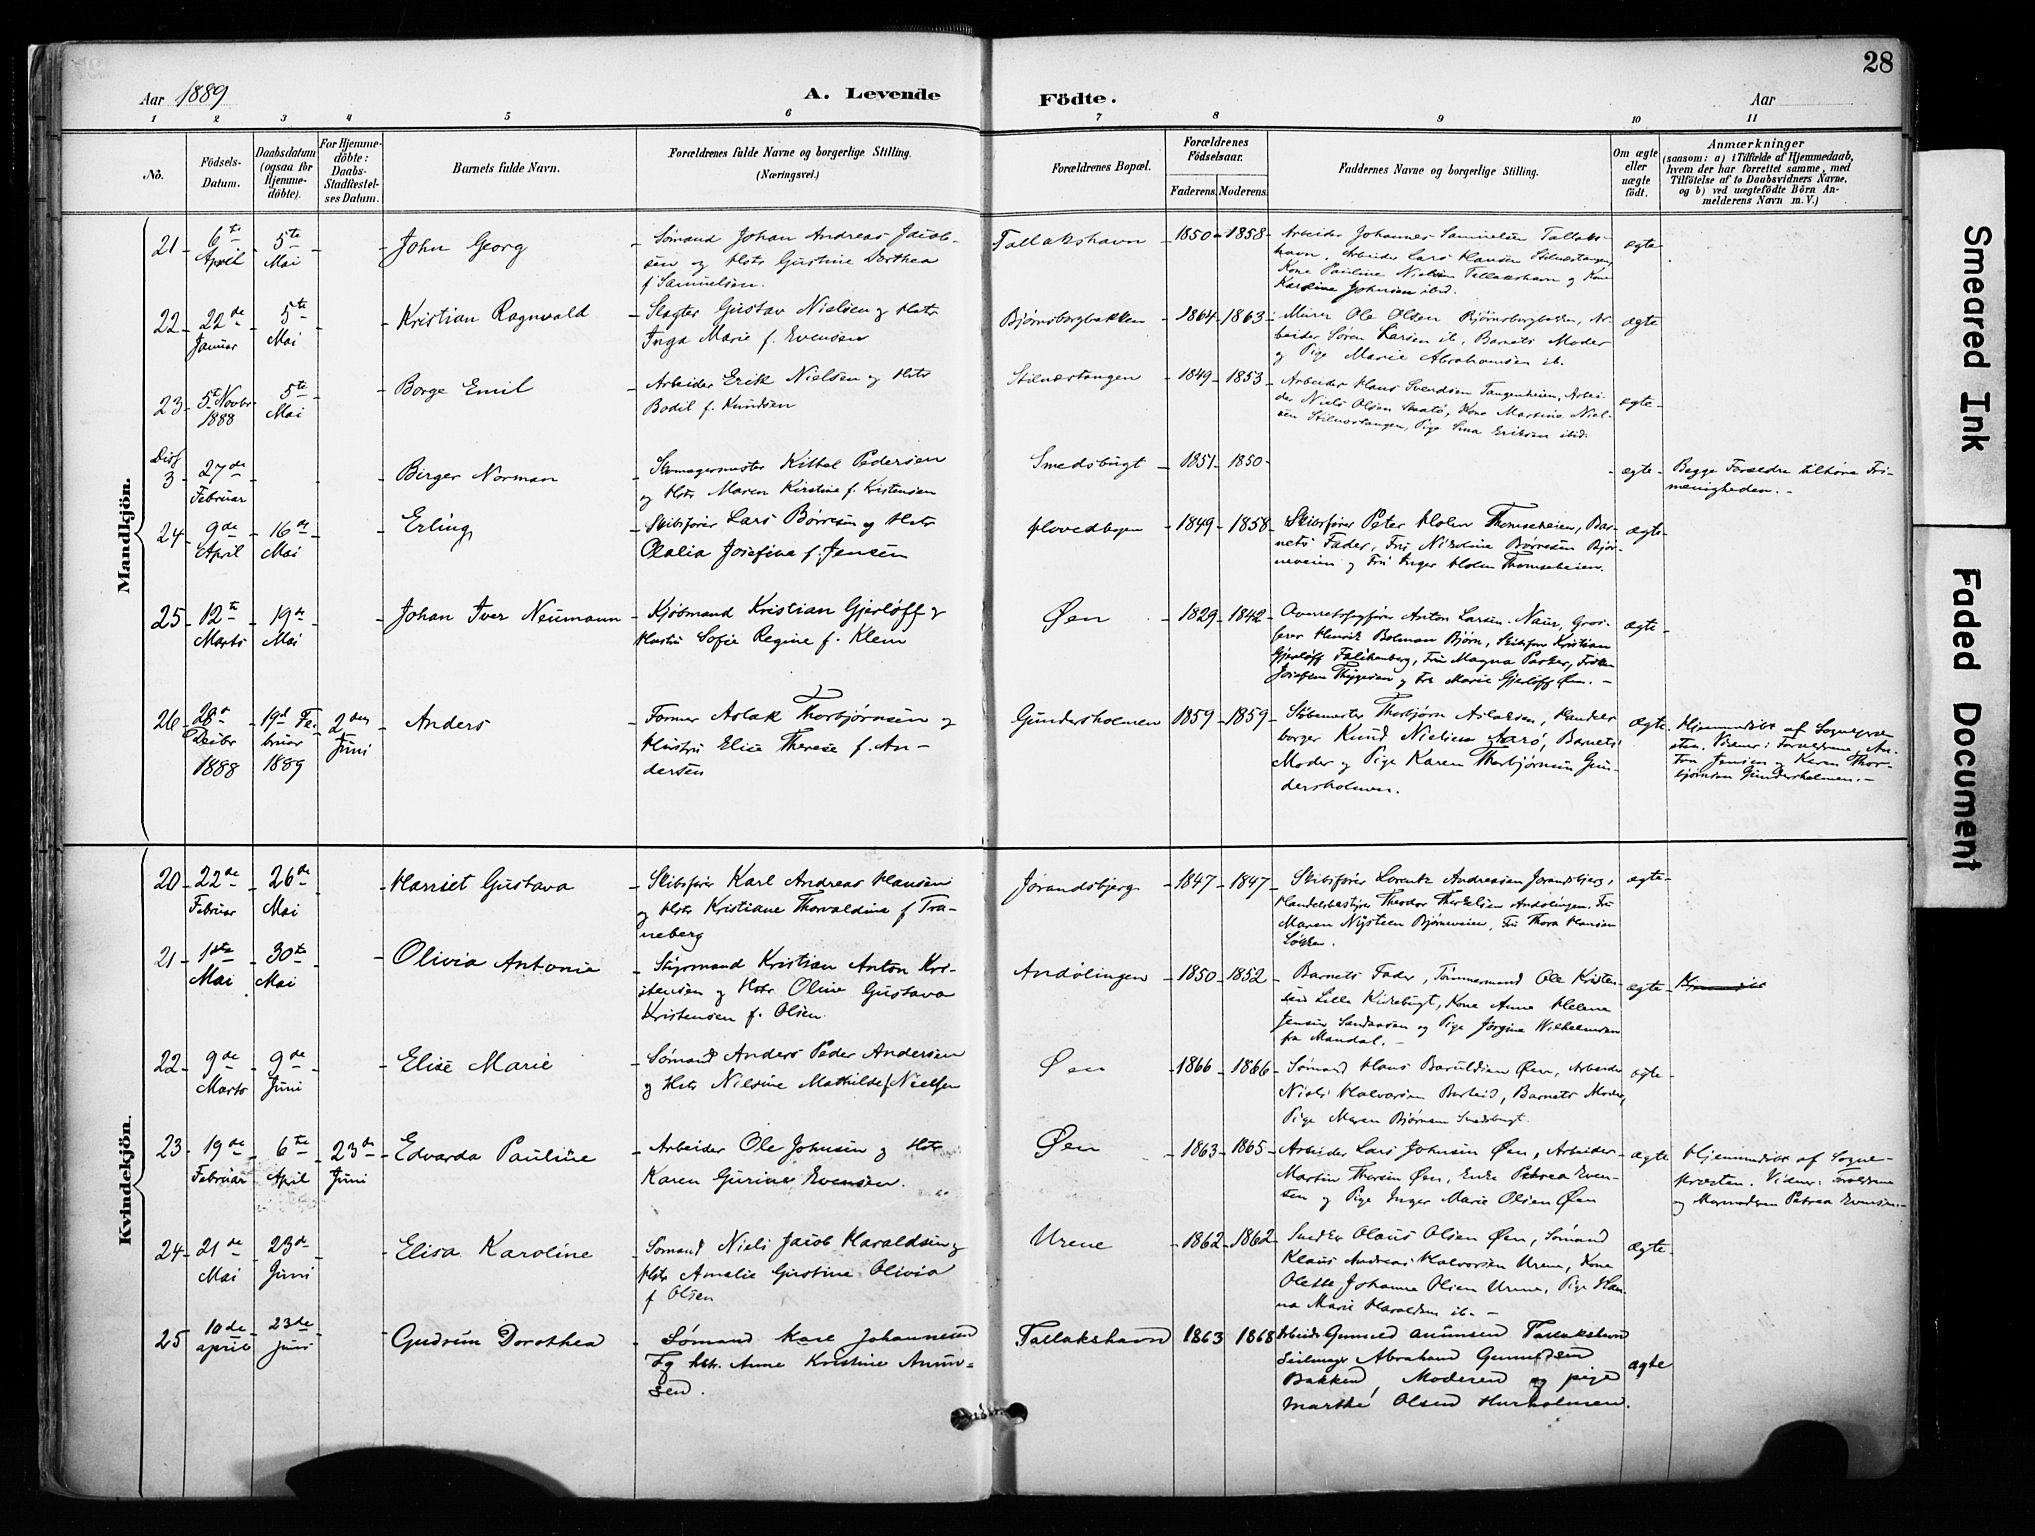 28
Aar 1889
A. Levende Födte.
Aar
1 2 3 4 5 6 7 8 9 10 11
No.
Födsels-Datum.
Daabsdatum (ogsaa för Hjemme-döbte).
For Hjemme-döbte: Daabs-Stadfestel-ses Datum.
Barnets fulde Navn.
Forældrenes fulde Navne og borgerlige Stilling. (Næringsvei.)
Forældrenes Bopæl.
Forældrenes Födselsaar.
Faderens. Moderens.
Faddernes Navne og borgerlige Stilling.
Om ægte eller uægte födt.
Anmærkninger
(saasom: a) i Tilfælde af Hjemmedaab,
hvem der har forrettet samme, med
Tilföielse af to Daabsvidners Navne,
og b) ved uægtefödte Börn An-
melderens Navn m. V.)
Mandkjön.
21 6te April 5te Mai John Georg
Sømand Johan Andreas Jacob-
sen og Hstr Gustine Dorthea
f Samuelsen.
Tallakshavn 1850 1858
Arbeider Johannes Samuelsen Tallaks-
havn, Arbeider Lars Hansen Stilnestangen,
Kone Pauline Nielsen Tallakshavn og Kone
Karoline Johnsen ibid.
ægte
22 22de Januar 5te Mai Kristian Ragnvald
Slagter Gustav Nielsen og Hstr
Inga Marie f. Evensen
Bjørnsborgbakken 1864 1863
Murer Ole Olsen Bjørnsborgbakken, Ar-
beider Søren Larsen ib, Barnets Moder
og Pige Marie Abrahamsen ib.
ægte
23 5te Novbr 1888 5te Mai Borge Emil
Arbeider Erik Nielsen og Hstr
Bodil f. Knudsen
Stilnestangen 1849 1853
Arbeider Hans Svendsen Tangenheien, Arbei-
der Niels Olsen Skaatø, Kone Martine Niel-
sen Stilnestangen, Pige Sina Eriksen ibid.
ægte
Diss 3 27de Februar Birger Norman
Skomagermester Kittel Pedersen
og Hstr Maren Kirstine f. Kristensen
Smedsbugt 1851 1850
ægte
Begge Forældre tilhøre Fri-
menigheden.
24 9de April 16de Mai Erling
Skibsfører Lars Børresen og Hstr
Olalia Josefine f. Jensen
Hovedbyen 1849 1858
Skibsfører Peter Holm Thomseheien, Bar-
nets Fader, Fru Nikoline Børresen Bjør-
neveien og Fru Inger Holm Thomseheien.
ægte
25 12te Marts 19de Mai Johan Iver Neumann
Kjøbmand Kristian Gjerløff og
Hustru Sofie Regine f. Klein
Øen 1829 1842
Overretssagfører Anton Larsen-Naur, Gros-
serer Henrik Bolman Bjørn, Skibsfør Kristian
Gjerløff Falkenberg, Fru Magna Parker, Frøken
Josefine Thygesen og Fru Marie Gjerløff Øen.
ægte
26 28de Decbr 1888 19de Fe-bruar 1889 2den Juni Anders
Former Aslak Thorbjørnsen og
Hustru Elise Therese f. An-
dersen
Gundersholmen 1859 1859
Støbemester Thorbjørn Aslaksen, Handels-
borger Knud Nielsen Aarø, Barnets
Moder og Pige Karen Thorbjørnsen Gun-
dersholmen.
ægte
Hjemmedøbt af Sognepræ-
sten. Vidner: Forældrene, An-
ton Jensen og Karen Thor-
bjørnsen Gundersholmen.
Kvindekjön.
20 22de Februar 26de Mai Harriet Gustava
Skibsfører Karl Andreas Hansen
og Hstr Kristiane Thorvaldine f Tra-
neberg
Jorandsbjerg 1847 1847
Skibsfører Lorentz Andreasen Jorandsbjerg,
Handelsbestyrer Theodor Therkelsen Andølingen, Fru
Maren Nysteen Bjørneveien, Fru Thora Hansen
Løkken.
ægte
21 1ste Mai 30te Mai Olivia Antonie
Styrmand Kristian Anton Kri-
stensen og Hstr Oline Gustava
Kristensen f. Olsen
Andølingen 1850 1852
Barnets Fader, Tømmermand Ole Kristen-
sen Lille Kirkebugt, Kone Anne Helene
Jensen Sandaasen og Pige Jørgine Wilhelmsen
fra Mandal.
ægte
22 9de Marts 9de Juni Elise Marie
Sømand Anders Peder Andersen
og Hstr Nilsine Mathilde f Nielsen
Øen 1866 1866
Sømand Hans Baruldsen Øen, Arbeider
Niels Halvorsen Barleid, Barnets Moder,
Pige Maren Bjørnsen Smedsbugt.
ægte
23 19de Februar 6te April 23de Juni Edvarda Pauline
Arbeider Ole Johnsen og Hstr
Karen Gurine Evensen.
Øen 1863 1865
Arbeider Lars Johnsen Øen, Arbeider
Martin Thorsen Øen, Enke Petrea Even-
sen og Pige Inger Marie Olsen Øen
ægte
Hjemmedøbt af Sogne-
præsten. Vidner: Forældrene
og Mormoderen Petrea Evensen.
24 21de Mai 23de Juni Elisa Karoline
Sømand Niels Jacob Haraldsen og
Hstr Amalie Gustine Olivia
f Olsen
Urene 1862 1862
Snedker Olaus Olsen Øen, Sømand
Klaus Andreas Halvorsen Urene, Kone
Olette Johanne Olsen Urene, Pige Han-
na Marie Haraldsen ib.
ægte
25 10de april 23de juni Gudrun Dorothea
Sømand Karl Johannesen
og hstr. Anne Kristine Anun-
sen.
Tallakshavn 1863 1868
Arbeider Gunnuld Anunsen Tallakshavn
Seilmager Abraham Gunnuldsen
Bakken, Moderen og pige
Marthe Olsen Hurholmen.
ægte
Smeared Ink
Faded Document